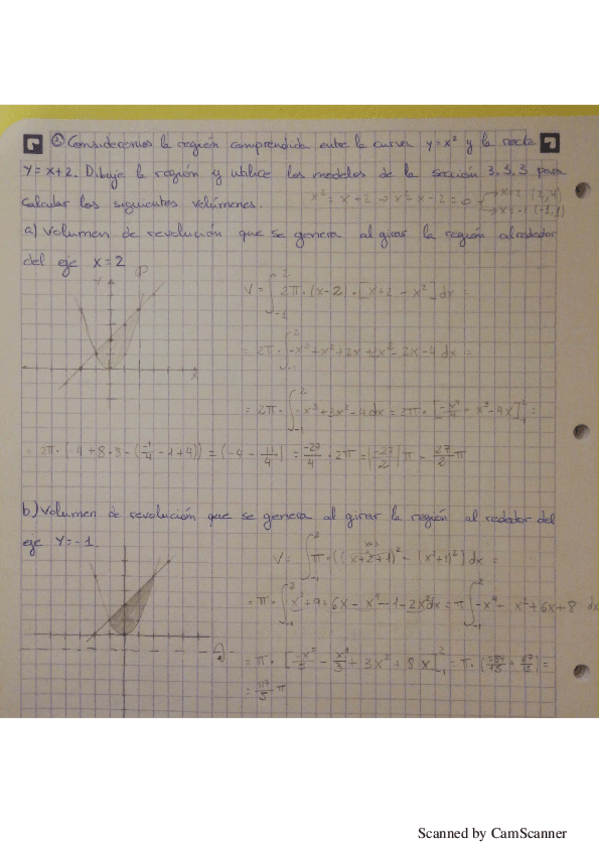 ② Consideremos la región comprendida entre la curva y=x² y la recta
y=x+2. Dibuje la región y utilice los modelos de la sección 3.3.3 para
calcular los siguientes volúmenes. x²=x+2 → x²-x-2=0 → x=2 (2,4)
→ x=-1 (-1,1)
a) Volumen de revolución que se genera al girar la región alrededor
del eje x=2
V = ∫₋₁² 2π·(x-2)·[x+2-x²]dx =
= 2π·∫₋₁² -x³+x²+2x+2x²-2x-4 dx =
= 2π·∫₋₁² -x³+3x²-4dx = 2π·[-x⁴/4 - x³-4x]₋₁² =
= 2π·(-4+8-8-(-1/4-1+4)) = (-4-11/4) = -27/4·2π = |-27/2|π = 27/2 π
b) Volumen de revolución que se genera al girar la región al rededor del
eje y=-1.
V = ∫₋₁² π·((x+2+1)² - (x²+1)²]dx =
x+3
= π·∫₋₁² x²+9+6x-x⁴-1-2x²dx = π∫₋₁² -x⁴-x²+6x+8 dx
= π·[-x⁵/5 - x³/3 + 3x² + 8x]₋₁² =
= 117/5 π
Scanned by CamScanner